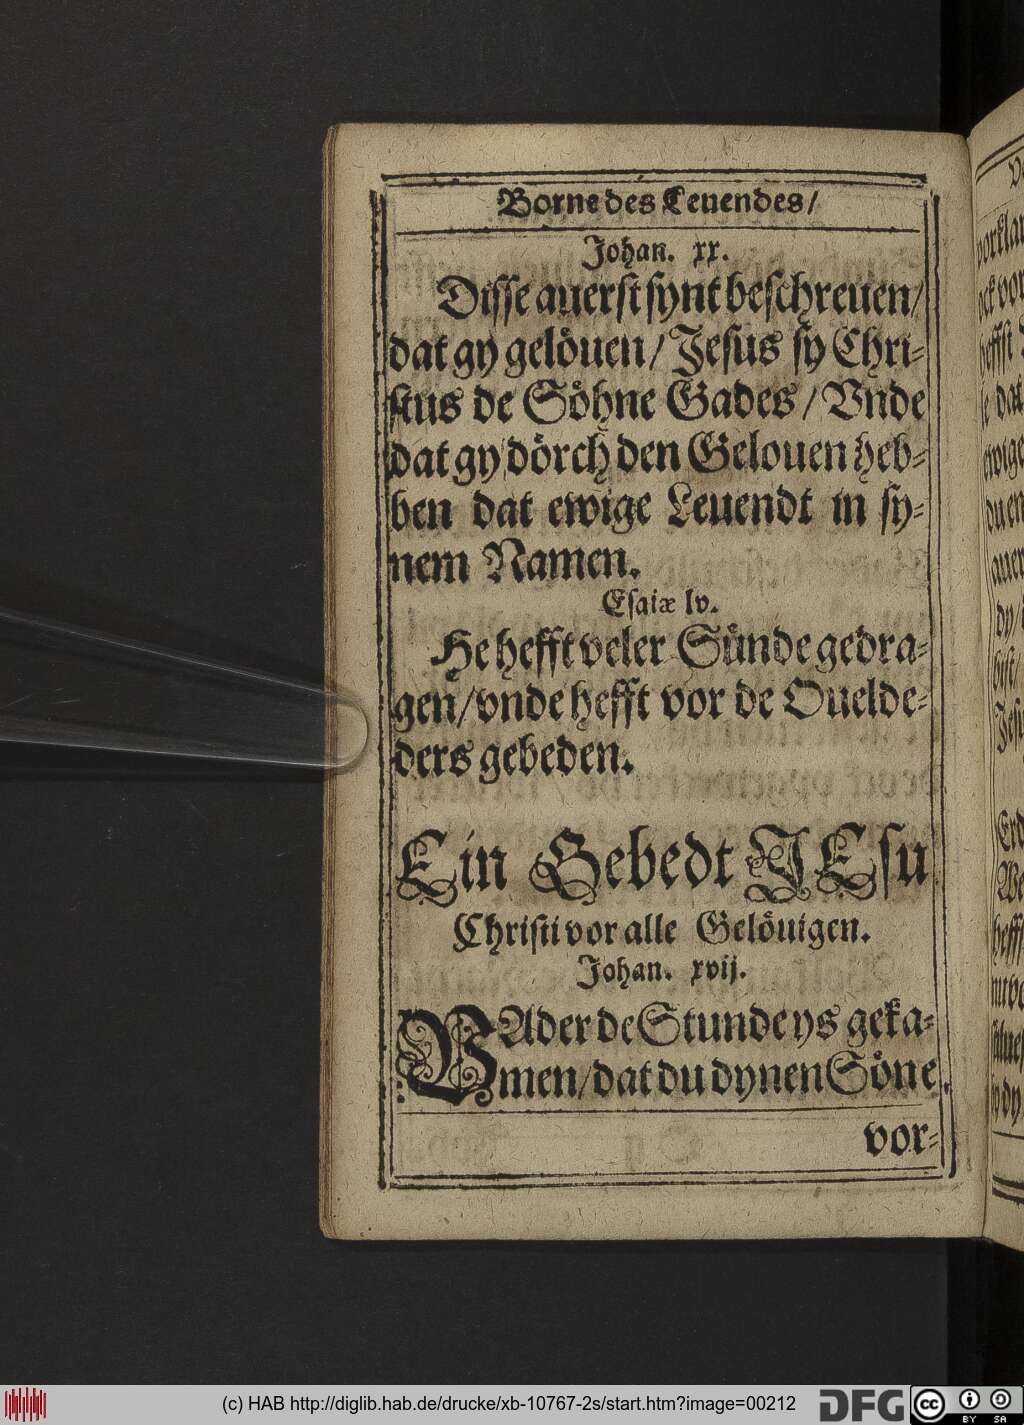 Borne des Leuendes/
Johan. xx.
Disse auerst synt beschreuen/
dat gy gelöuen/ Jesus sy Chri-
stus de Söhne Gades/ Vnde
dat gy dörch den Gelouen heb-
ben dat ewige Leuendt in sy-
nem Namen.
Esaiæ lv.
He hefft veler Sünde gedra-
gen/ vnde hefft vor de Ouelde-
ders gebeden.
Ein Gebedt JEsu
Christi vor alle Gelöuigen.
Johan. xvij.
VAder de Stunde ys geka-
men/ dat du dynen Söne
vor-
(c) HAB http://diglib.hab.de/drucke/xb-10767-2s/start.htm?image=00212
DFG
cc
BY SA